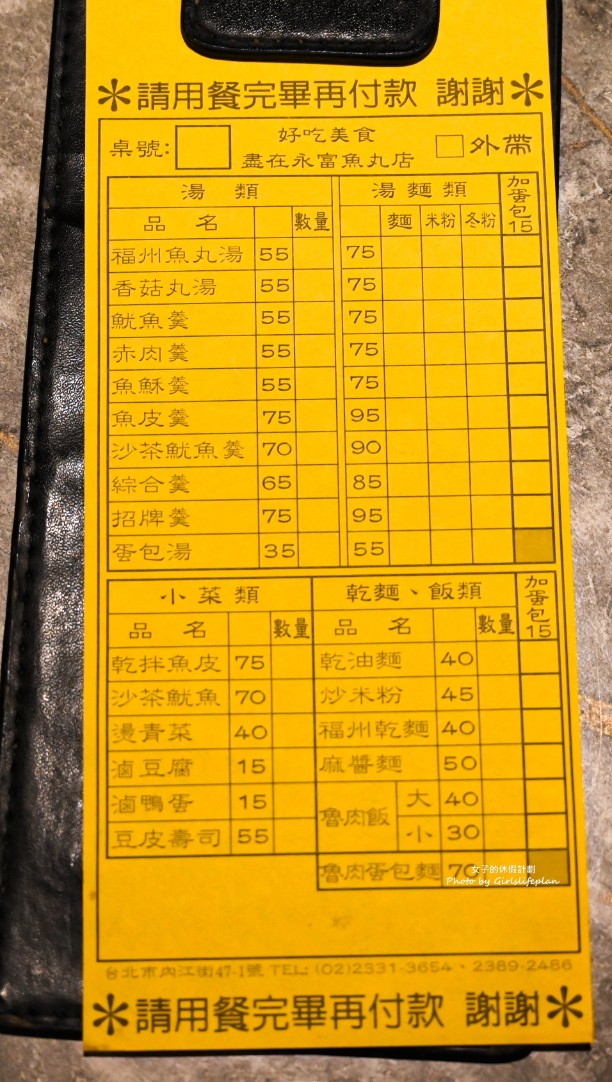 ＊請用餐完畢再付款 謝謝＊
桌號: 好吃美食 盡在永富魚丸店 外帶
湯類 湯麵類 加蛋包15
品名 數量 麵 米粉 冬粉
福州魚丸湯 55 75
香菇丸湯 55 75
魷魚羹 55 75
赤肉羹 55 75
魚酥羹 55 75
魚皮羹 75 95
沙茶魷魚羹 70 90
綜合羹 65 85
招牌羹 75 95
蛋包湯 35 55
小菜類 乾麵、飯類 加蛋包15
品名 數量 品名 數量
乾拌魚皮 75 乾油麵 40
沙茶魷魚 70 炒米粉 45
燙青菜 40 福州乾麵 40
滷豆腐 15 麻醬麵 50
滷鴨蛋 15 魯肉飯 大 40
豆皮壽司 55 小 30
魯肉蛋包麵 70
女子的休假計劃
Photo by Girlslifeplan
台北市內江街47-1號 TEL: (02)2331-3654、2389-2486
＊請用餐完畢再付款 謝謝＊